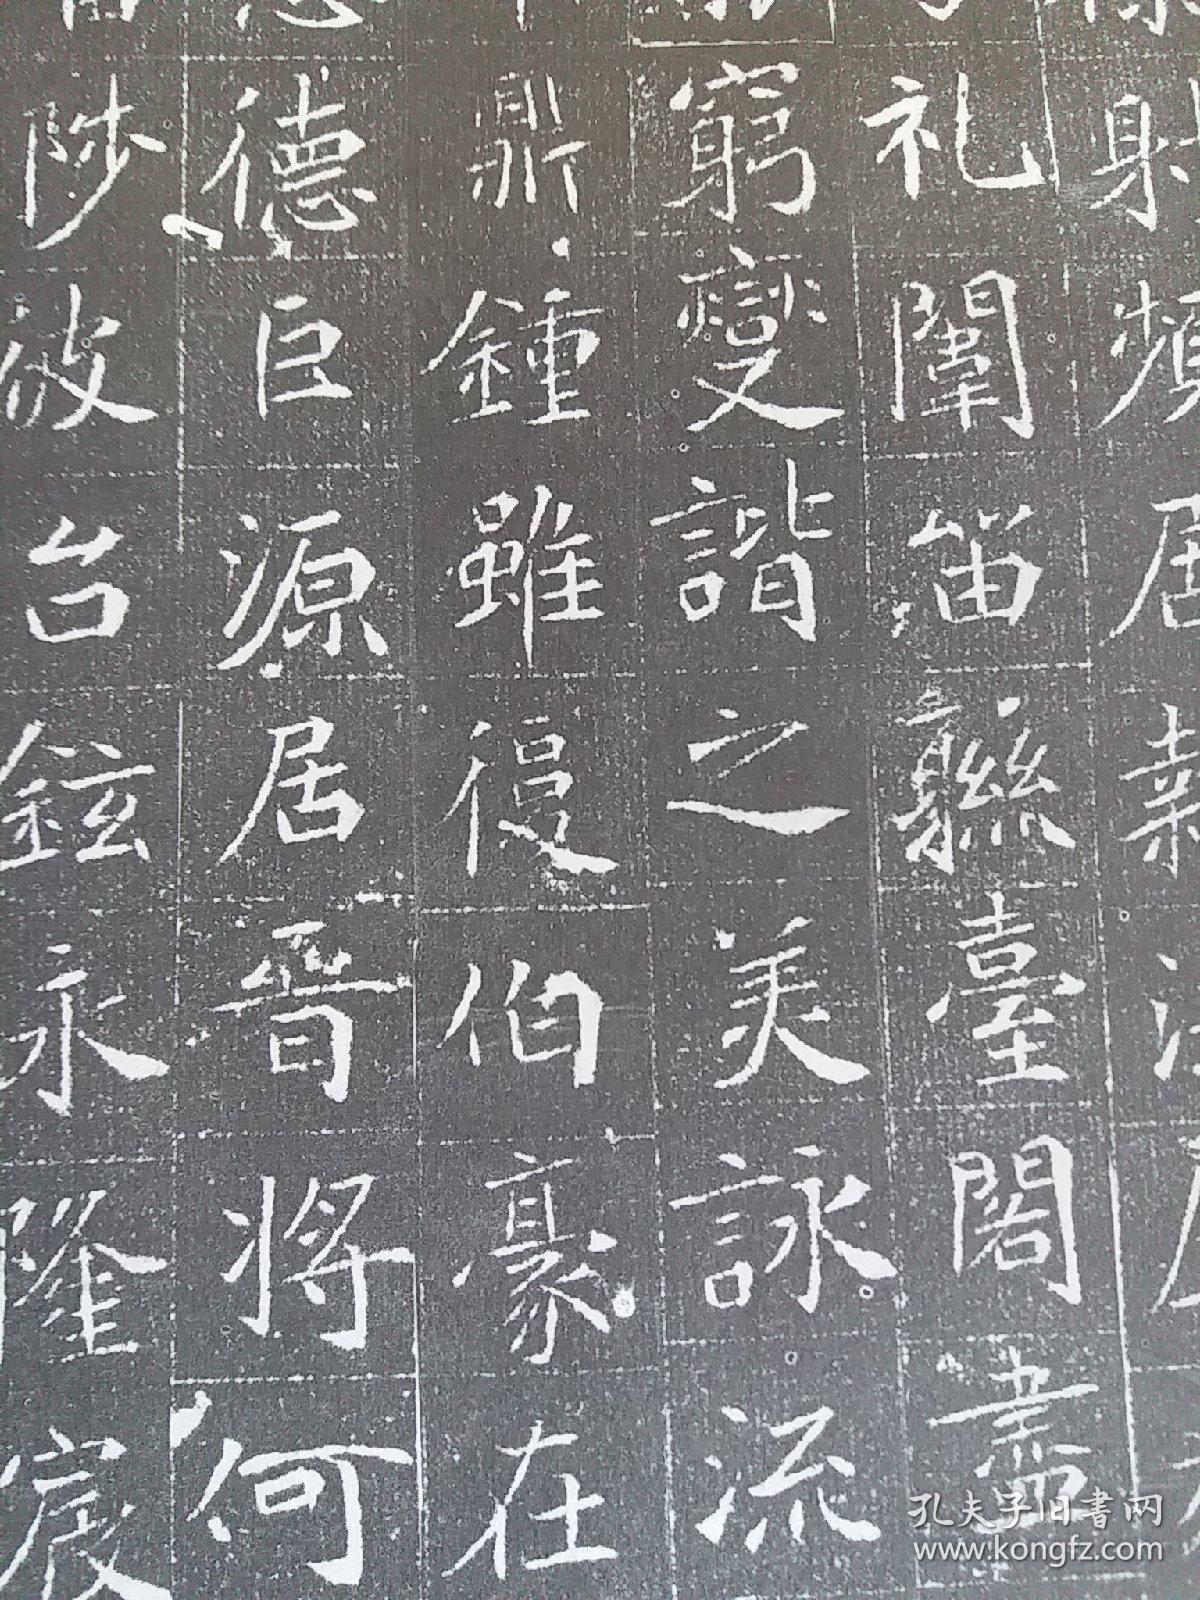 射頻居
礼闈甾聮臺閣盡
窮變諧之美詠流
鼎鍾雖復伯豪在
德巨源居晉將何
陟彼台鉉永隆宸
孔夫子旧書网
www.kongfz.com